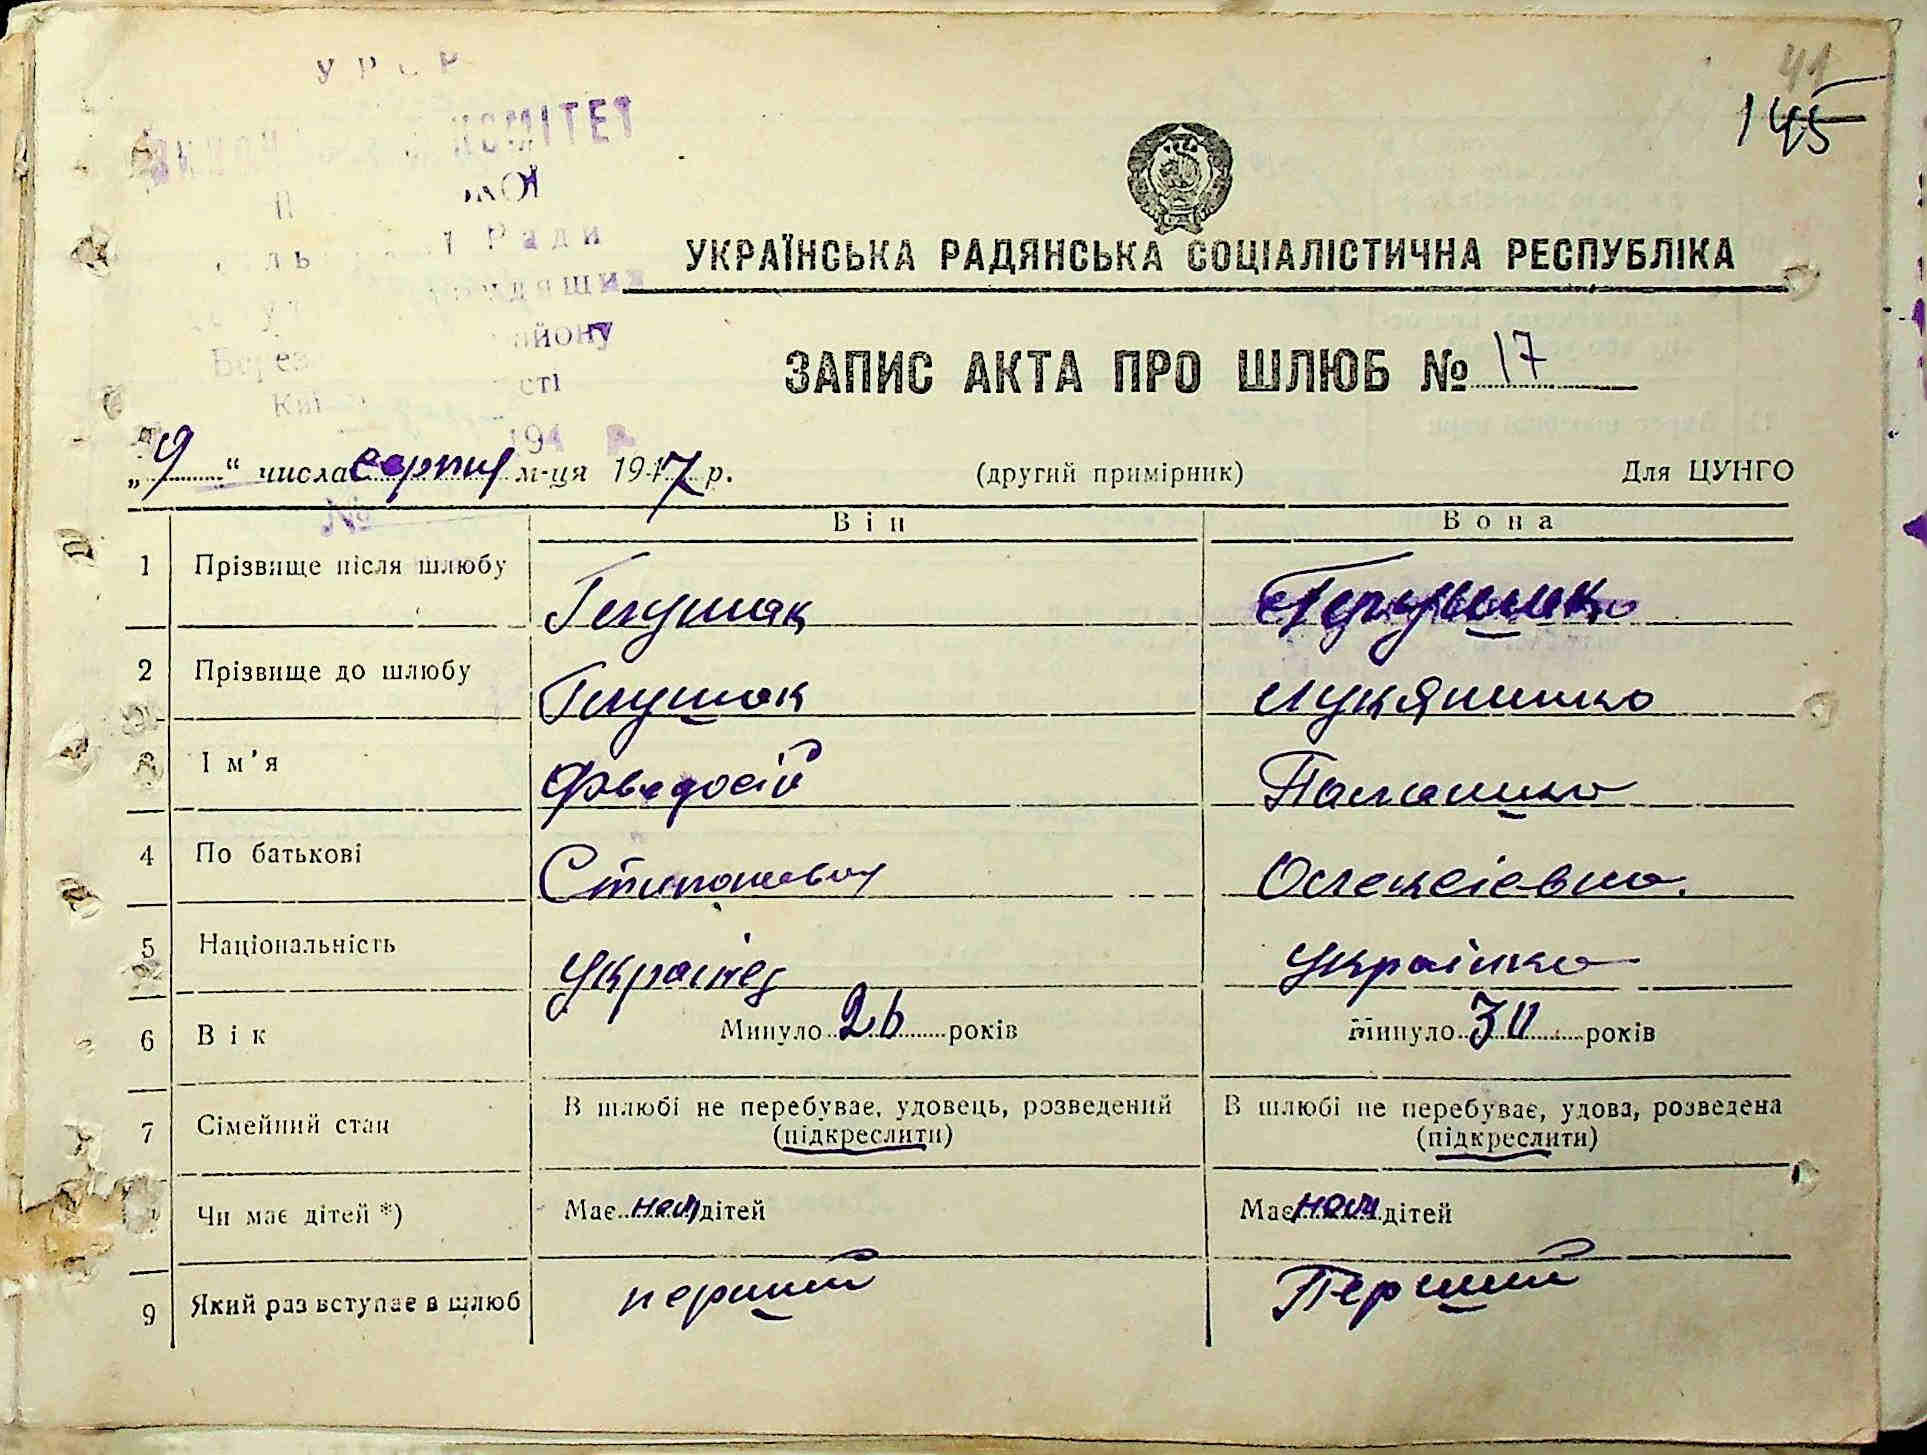 УРСР
КОМІТЕТ
Ради
айону
Берез
сті
194
№
41
145
УКРАЇНСЬКА РАДЯНСЬКА СОЦІАЛІСТИЧНА РЕСПУБЛІКА
ЗАПИС АКТА ПРО ШЛЮБ № 17
„9“ числа серпня м-ця 1947 р. (другий примірник) Для ЦУНГО
Він Вона
1 Прізвище після шлюбу Глушак
2 Прізвище до шлюбу Глушак Лукяненко
3 Ім'я Федосій Палашка
4 По батькові Степанович Олексіевна.
5 Національність українец українка
6 Вік Минуло 26 років Минуло 30 років
7 Сімейний стан В шлюбі не перебуває, удовець, розведений (підкреслити) В шлюбі не перебуває, удова, розведена (підкреслити)
Чи має дітей *) Має нем дітей Має нем дітей
9 Який раз вступає в шлюб перший Перший